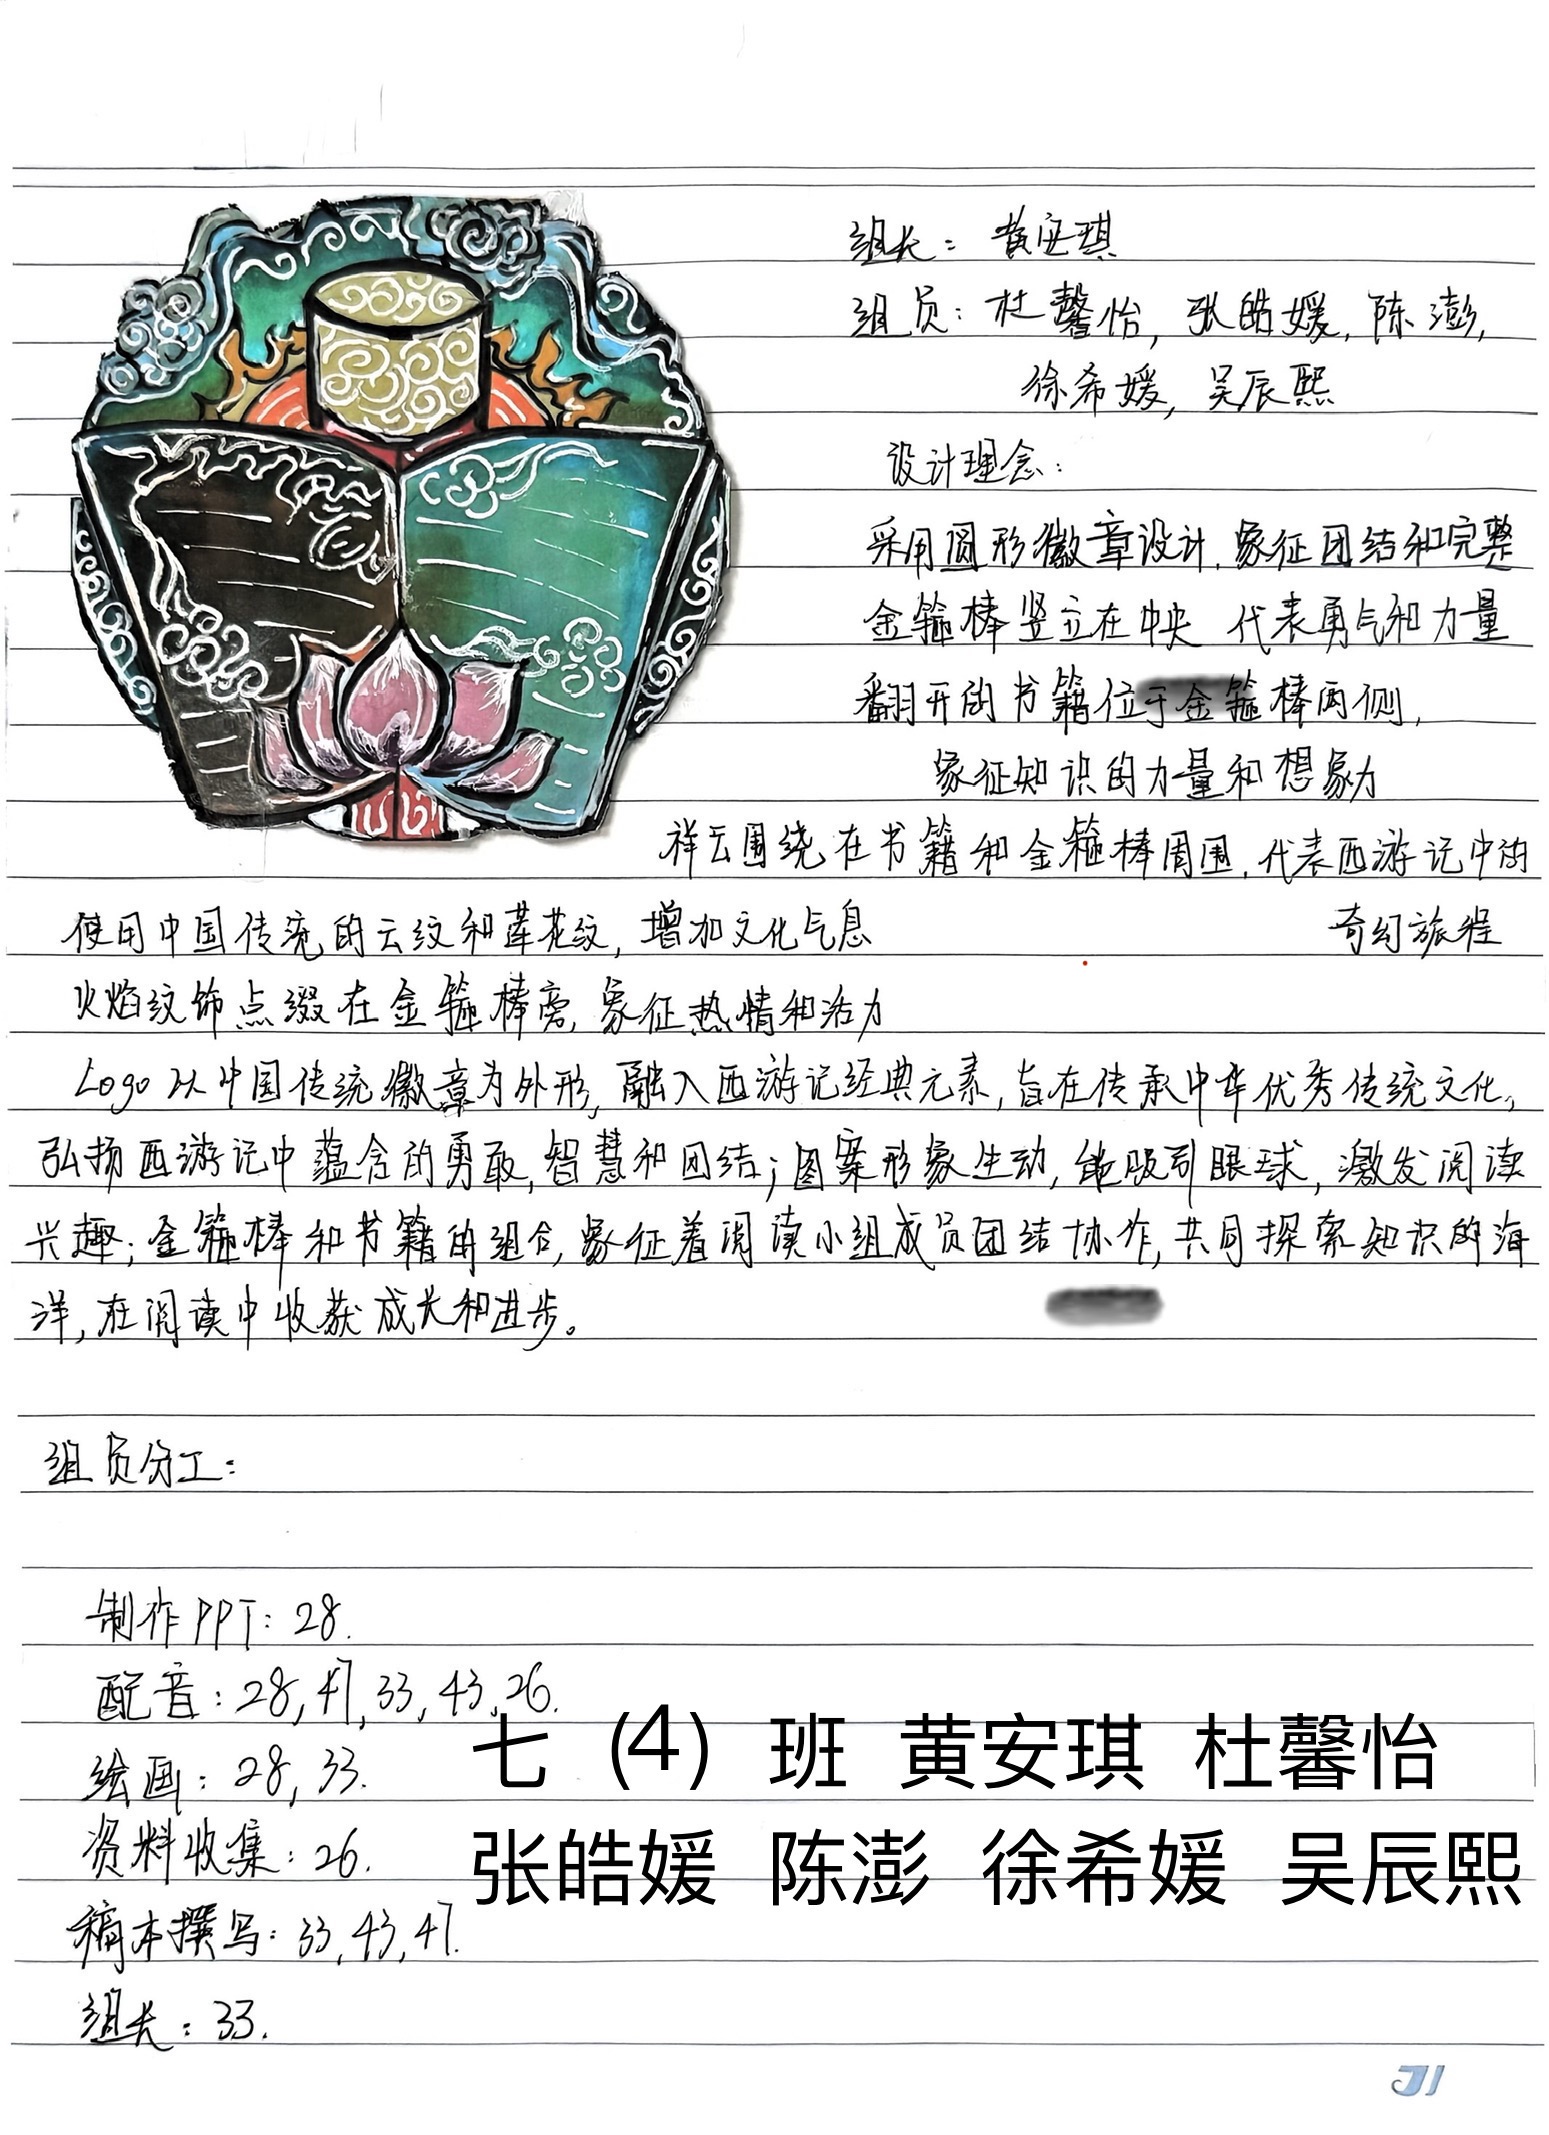 组长：黄安琪
组员：杜馨怡，张皓媛，陈澎，
徐希媛，吴辰熙
设计理念：
采用圆形徽章设计，象征团结和完整
金箍棒竖立在中央 代表勇气和力量
翻开的书籍位于金箍棒两侧，
象征知识的力量和想象力
祥云围绕在书籍和金箍棒周围，代表西游记中的
奇幻旅程
使用中国传统的云纹和莲花纹，增加文化气息
火焰纹饰点缀在金箍棒旁，象征热情和活力
Logo以中国传统徽章为外形，融入西游记经典元素，旨在传承中华优秀传统文化，
弘扬西游记中蕴含的勇敢，智慧和团结；图案形象生动，能吸引眼球，激发阅读
兴趣；金箍棒和书籍的组合，象征着阅读小组成员团结协作，共同探索知识的海
洋，在阅读中收获成长和进步。
组员分工：
制作PPT：28.
配音：28，47，33，43，26.
绘画：28，33.
资料收集：26.
稿本撰写：33，43，47.
组长：33.
七（4）班 黄安琪 杜馨怡
张皓媛 陈澎 徐希媛 吴辰熙